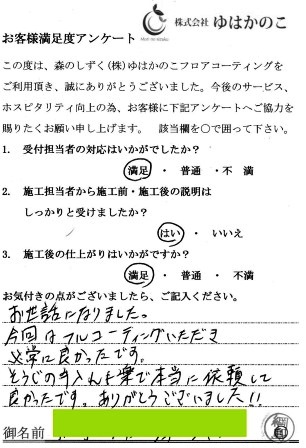 株式会社 ゆはかのこ
お客様満足度アンケート
この度は、森のしずく(株)ゆはかのこフロアコーティングを
ご利用頂き、誠にありがとうございました。今後のサービス、
ホスピタリティ向上の為、お客様に下記アンケートへご協力を
賜りたくお願い申し上げます。 該当欄を○で囲って下さい。
1. 受付担当者の対応はいかがでしたか?
満足 ・ 普通 ・不 満
2. 施工担当者から施工前・施工後の説明は
しっかりと受けましたか?
はい ・ いいえ
3. 施工後の仕上がりはいかがですか?
満足 ・ 普通 ・ 不満
お気付きの点がございましたら、ご記入ください。
お世話になりました。
今回はフルコーティングいただき
非常に良かったです。
そうじの手入れも楽で本当に依頼して
良かったです。ありがとうございました!!
御名前